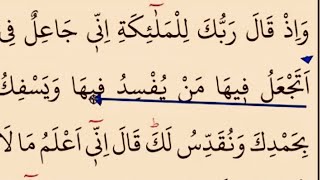 وَاِذْ قَالَ رَبُّكَ لِلْمَلٰٓئِكَةِ اِنّٖي جَاعِلٌ فِي
اَتَجْعَلُ فٖيهَا مَنْ يُفْسِدُ فٖيهَا وَيَسْفِكُ
بِحَمْدِكَ وَنُقَدِّسُ لَكَۜ قَالَ اِنّٖٓي اَعْلَمُ مَا لَا